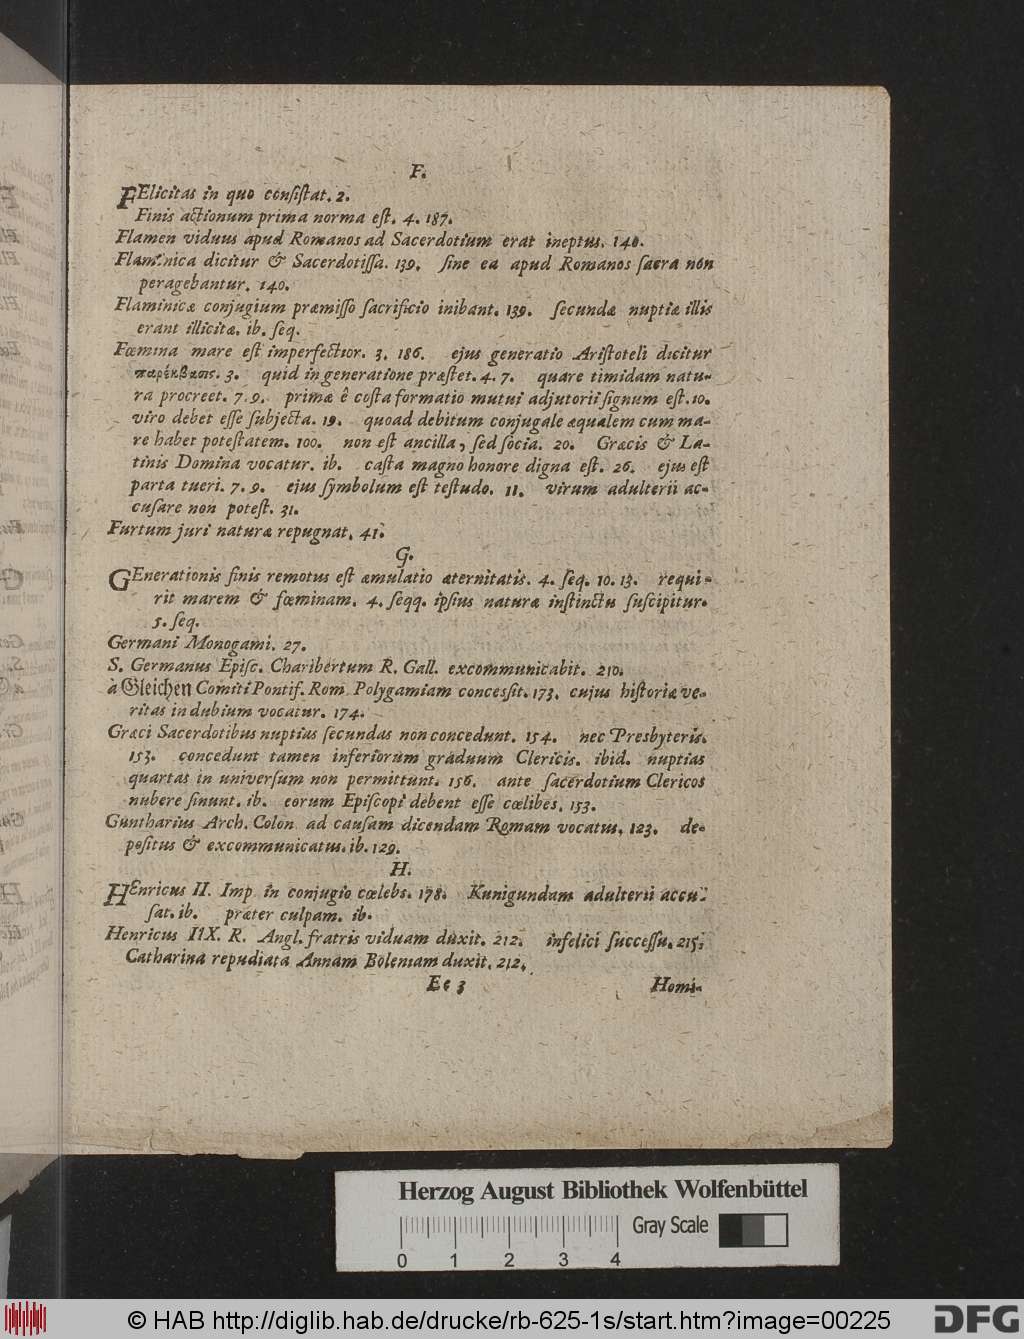 F.
FElicitas in quo consiſtat. 2.
Finis actionum prima norma eſt. 4. 187.
Flamen viduus apud Romanos ad Sacerdotium erat ineptus. 140.
Flaminica dicitur & Sacerdotiſſa. 139. ſine ea apud Romanos ſacra non
peragebantur. 140.
Flaminicæ conjugium præmiſſo ſacrificio inibant. 139. ſecundæ nuptiæ illis
erant illicitæ. ib. ſeq.
Fœmina mare eſt imperfectior. 3. 186. ejus generatio Ariſtoteli dicitur
παρέκβασις. 3. quid in generatione præſtet. 4. 7. quare timidam natu-
ra procreet. 7. 9. primæ ê coſta formatio mutui adjutorii ſignum eſt. 10.
viro debet eſſe ſubjecta. 19. quoad debitum conjugale æqualem cum ma-
re habet poteſtatem. 100. non eſt ancilla, ſed ſocia. 20. Græcis & La-
tinis Domina vocatur. ib. caſta magno honore digna eſt. 26. ejus eſt
parta tueri. 7. 9. ejus ſymbolum eſt teſtudo. 11. virum adulterii ac-
cuſare non poteſt. 31.
Furtum juri naturæ repugnat. 41.
G.
GEnerationis finis remotus eſt æmulatio æternitatis. 4. ſeq. 10. 13. requi-
rit marem & fœminam. 4. ſeqq. ipſius naturæ inſtinctu ſuſcipitur.
5. ſeq.
Germani Monogami. 27.
S. Germanus Epiſc. Charibertum R. Gall. excommunicabit. 210.
à Gleichen Comiti Pontif. Rom. Polygamiam conceſſit. 173. cujus hiſtoriæ ve-
ritas in dubium vocatur. 174.
Græci Sacerdotibus nuptias ſecundas non concedunt. 154. nec Presbyteris.
153. concedunt tamen inferiorum graduum Clericis. ibid. nuptias
quartas in univerſum non permittunt. 156. ante ſacerdotium Clericos
nubere ſinunt. ib. eorum Epiſcopi debent eſſe cœlibes. 153.
Guntharius Arch. Colon ad cauſam dicendam Romam vocatus. 123. de-
poſitus & excommunicatus. ib. 129.
H.
HEnricus II. Imp. in conjugio cœlebs. 178. Kunigundam adulterii accu-
ſat. ib. præter culpam. ib.
Henricus IIX. R. Angl. fratris viduam duxit. 212. infelici ſucceſſu. 215.
Catharina repudiata Annam Boleniam duxit. 212.
Ee 3 Homi-
Herzog August Bibliothek Wolfenbüttel
Gray Scale
0 1 2 3 4
© HAB http://diglib.hab.de/drucke/rb-625-1s/start.htm?image=00225
DFG